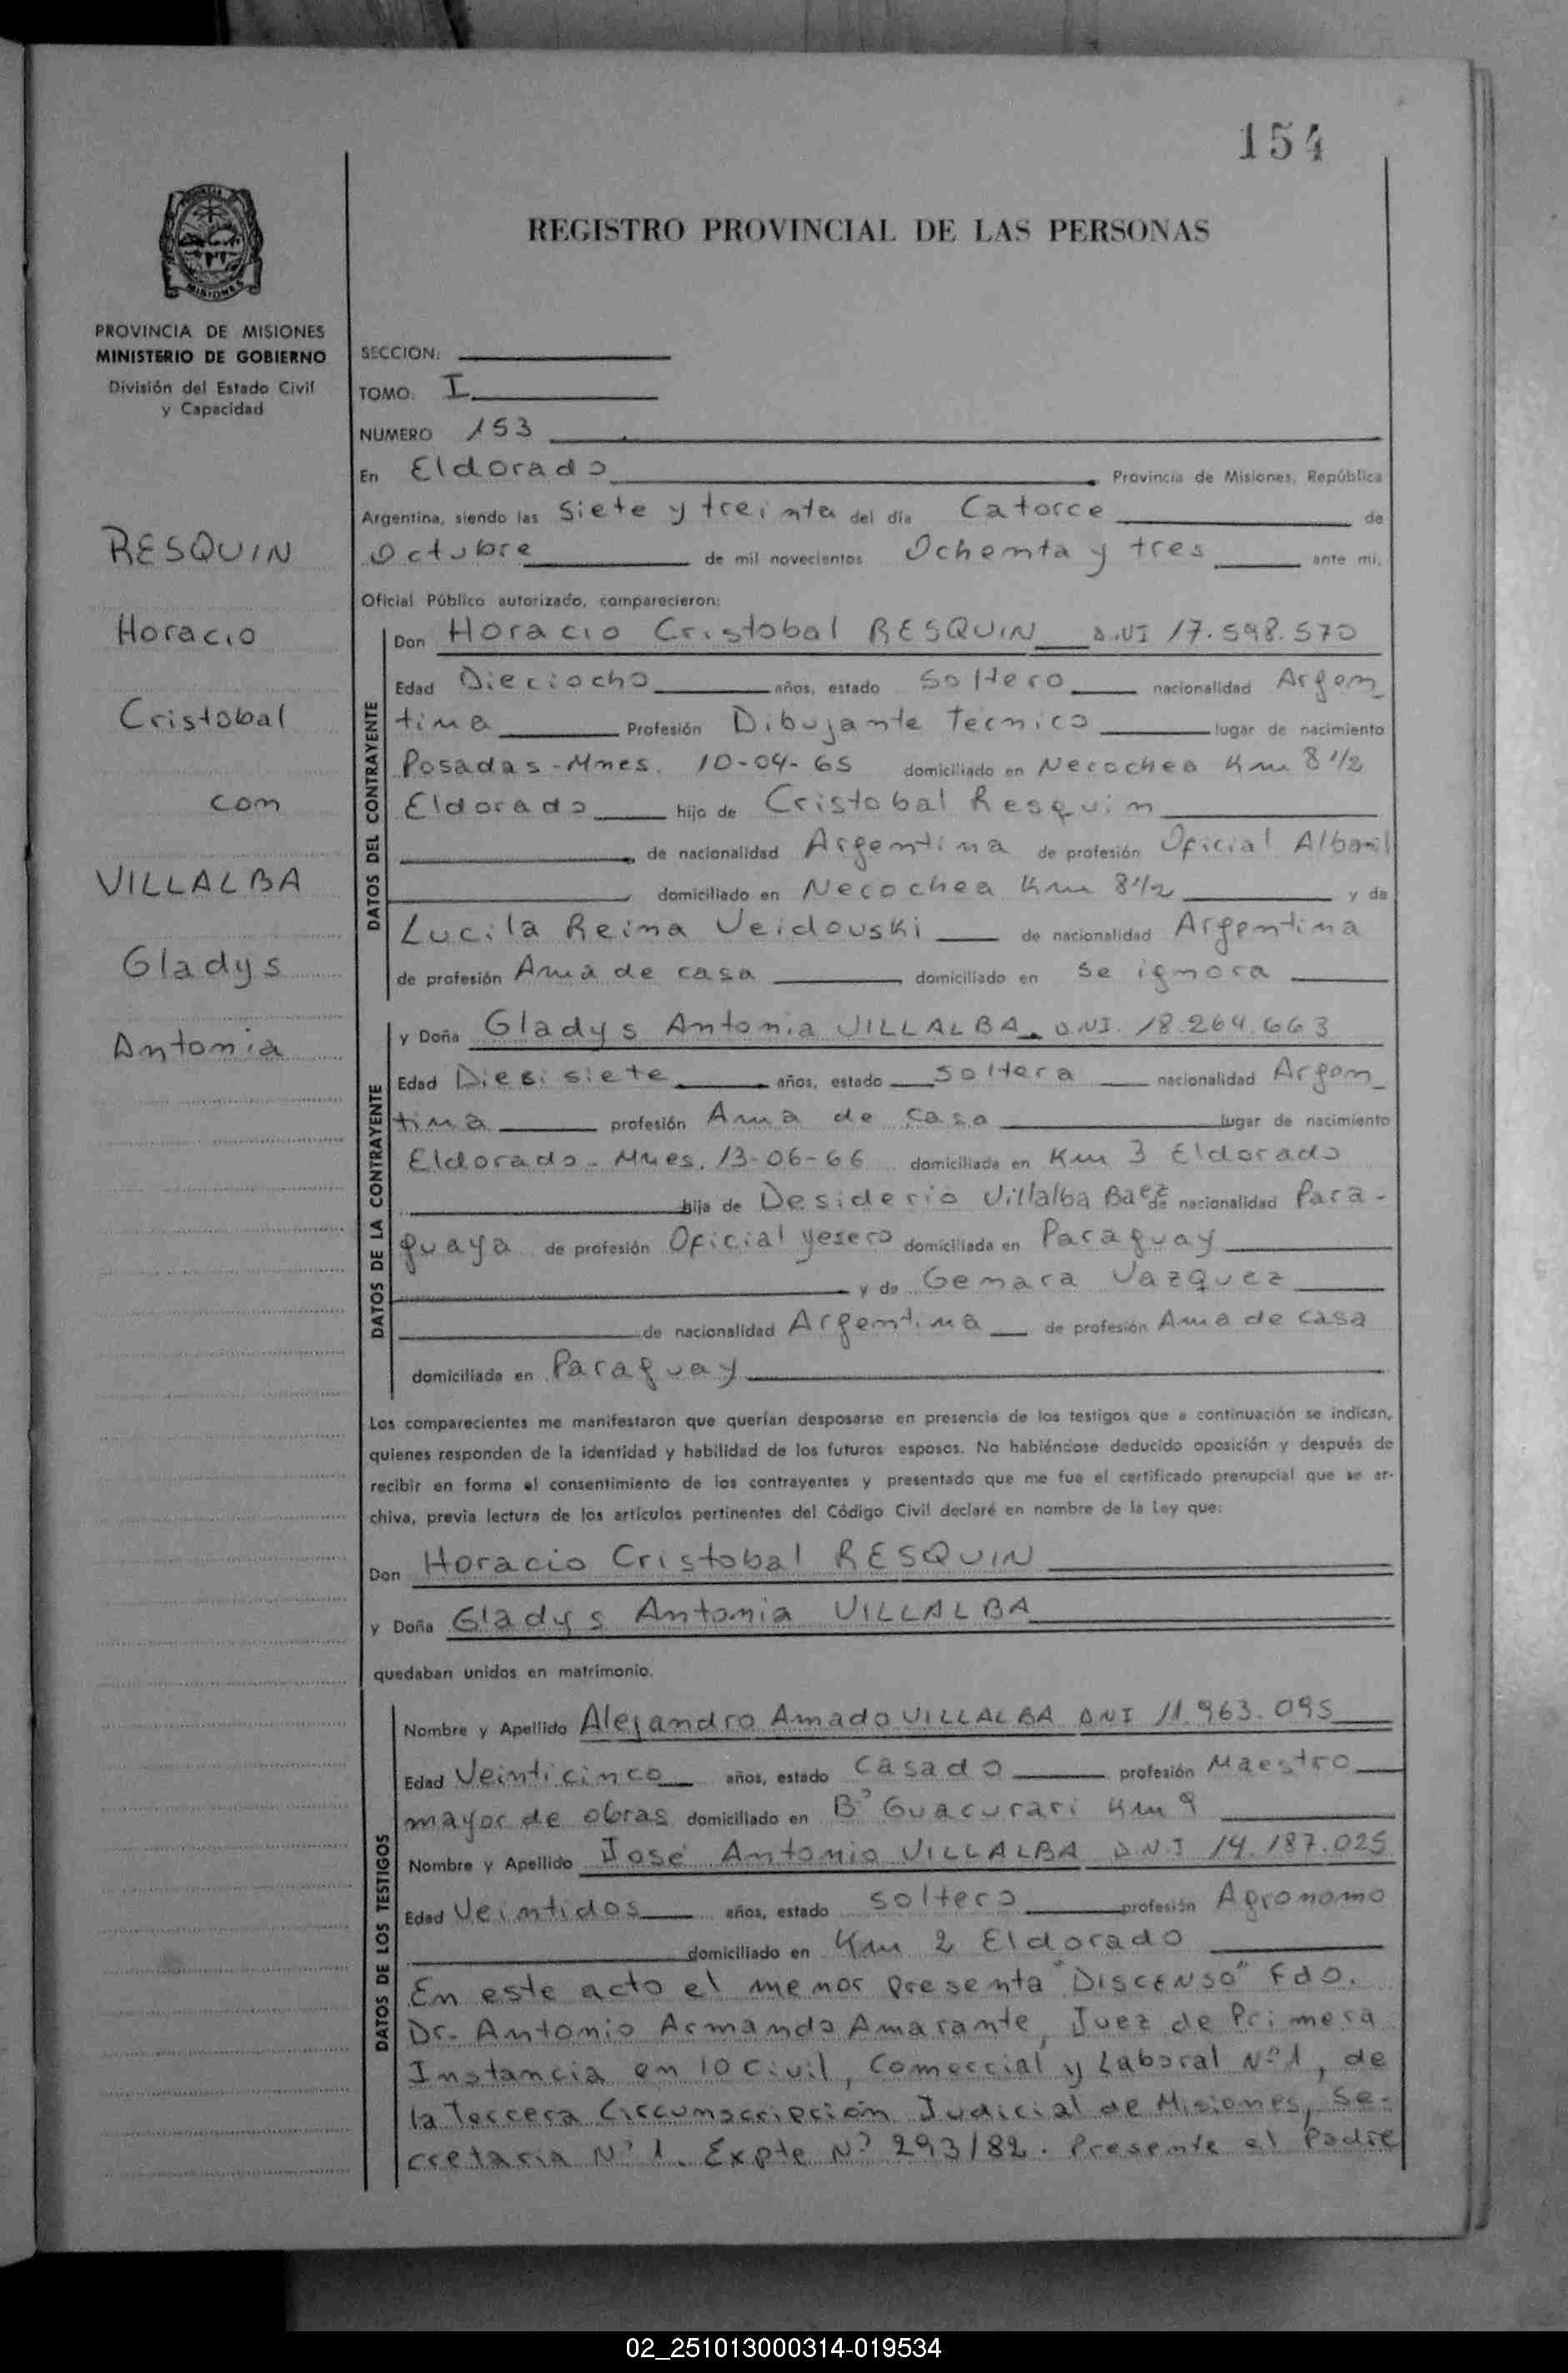 154
REGISTRO PROVINCIAL DE LAS PERSONAS
PROVINCIA DE MISIONES
MINISTERIO DE GOBIERNO
División del Estado Civil
y Capacidad
RESQUIN
Horacio
Cristobal
con
VILLALBA
Gladys
Antonia
SECCION:
TOMO: I
NUMERO 153
En Eldorado Provincia de Misiones, República
Argentina, siendo las Siete y treinta del día Catorce de
Octubre de mil novecientos Ochenta y tres ante mi,
Oficial Público autorizado, comparecieron:
DATOS DEL CONTRAYENTE
Don Horacio Cristobal RESQUIN D.NI 17.598.570
Edad Dieciocho años, estado Soltero nacionalidad Argen_
tina Profesión Dibujante Tecnico lugar de nacimiento
Posadas-Mnes. 10-04-65 domiciliado en Necochea Km 8 1/2
Eldorado hijo de Cristobal Resquin
de nacionalidad Argentina de profesión Oficial Albañil
domiciliado en Necochea Km 8 1/2 y de
Lucila Reina Veidouski de nacionalidad Argentina
de profesión Ama de casa domiciliado en se ignora
DATOS DE LA CONTRAYENTE
y Doña Gladys Antonia VILLALBA D.NI. 18.264.663
Edad Diesisiete años, estado Soltera nacionalidad Argen_
tina profesión Ama de casa lugar de nacimiento
Eldorado - Mnes. 13-06-66 domiciliada en Km 3 Eldorado
hija de Desiderio Villalba Baez de nacionalidad Para-
guaya de profesión Oficial yesero domiciliada en Paraguay
y de Genara Vazquez
de nacionalidad Argentina de profesión Ama de casa
domiciliada en Paraguay
Los comparecientes me manifestaron que querían desposarse en presencia de los testigos que a continuación se indican,
quienes responden de la identidad y habilidad de los futuros esposos. No habiéndose deducido oposición y después de
recibir en forma el consentimiento de los contrayentes y presentado que me fue el certificado prenupcial que se ar-
chiva, previa lectura de los artículos pertinentes del Código Civil declaré en nombre de la Ley que:
Don Horacio Cristobal RESQUIN
y Doña Gladys Antonia VILLALBA
quedaban unidos en matrimonio.
DATOS DE LOS TESTIGOS
Nombre y Apellido Alejandro Amado VILLALBA DNI 11.963.095
Edad Veinticinco años, estado Casado profesión Maestro
mayor de obras domiciliado en Bº Guacurari Km 9
Nombre y Apellido José Antonio VILLALBA D.N.I 14.187.025
Edad Veintidos años, estado soltero profesión Agronomo
domiciliado en Km 2 Eldorado
En este acto el menor presenta "DISCENSO" Fdo.
Dr. Antonio Armando Amarante, Juez de Primera
Instancia en lo Civil, Comercial y Laboral Nº 1, de
la Tercera Circunscripción Judicial de Misiones, Se-
cretaria Nº 1. Expte Nº 293/82. Presente el Padre
02_251013000314-019534